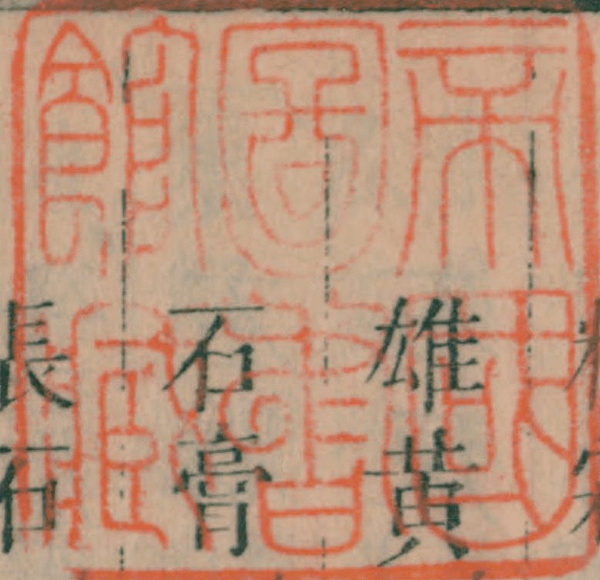 帝國
圖書
館藏
雄黄
石膏
長石